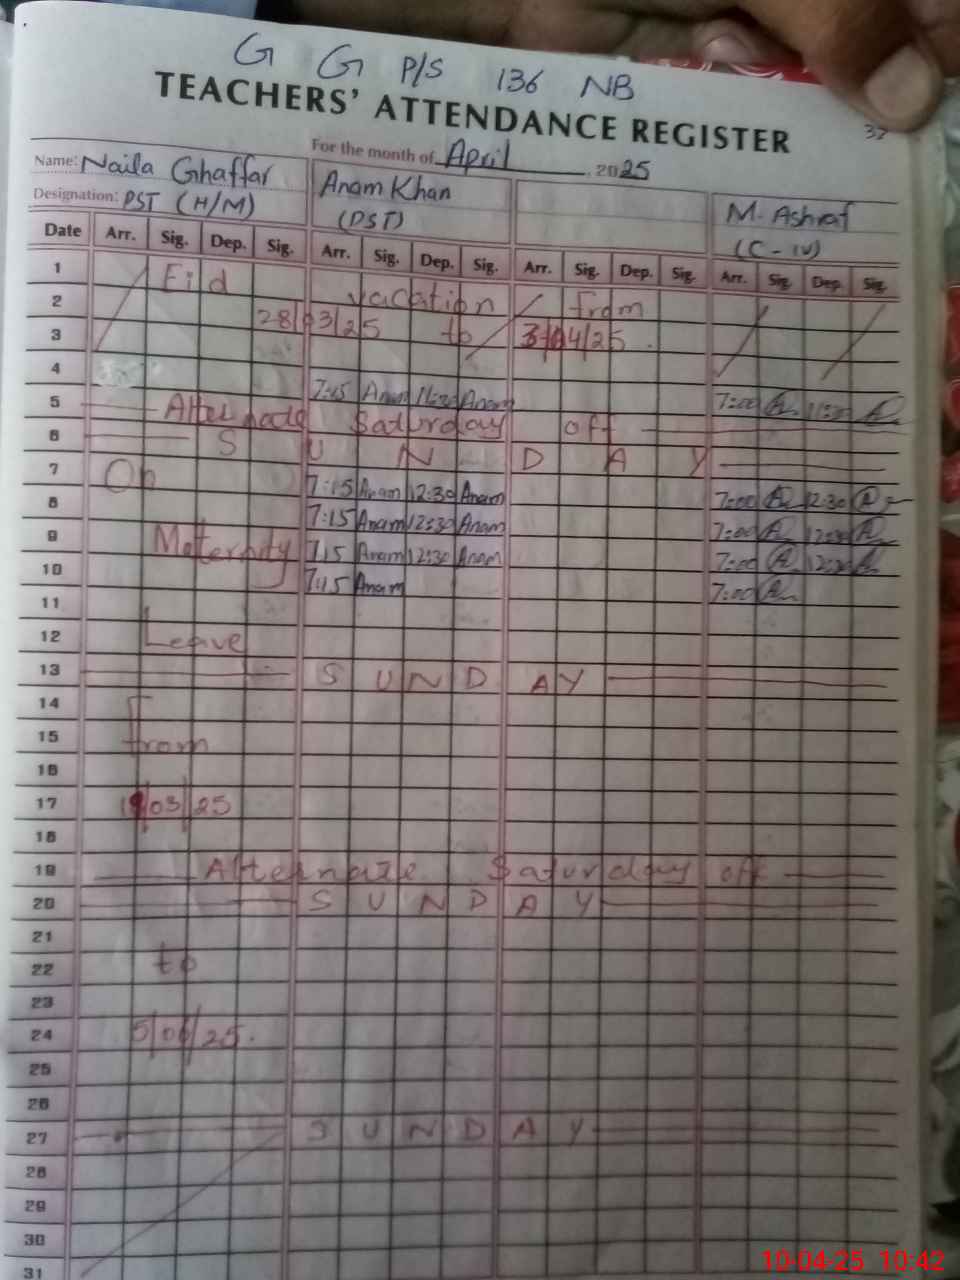 G G P/S 136 NB
TEACHERS' ATTENDANCE REGISTER
37
For the month of April, 2025
Name: Naila Ghaffar Anam Khan M. Ashraf
Designation: PST (H/M) (PST) (C-IV)
Date Arr. Sig. Dep. Sig. Arr. Sig. Dep. Sig. Arr. Sig. Dep. Sig. Arr. Sig. Dep. Sig.
1 Eid vacation from
2 28/03/25 to 3/04/25.
3
4 7:15 Anam 11:30 Anam 7:00 11:30
5 Alternade Saturday off
6 S U N D A Y
7 On 7:15 Anam 12:30 Anam 7:00 12:30
8 7:15 Anam 12:30 Anam 7:00 12:30
9 Meternity 7:15 Anam 12:30 Anam 7:00 12:30
10 7:15 Anam 7:00
11
12 Leave
13 S U N D A Y
14
15 from
16
17 19/03/25
18
19 Alternate Saturday off
20 S U N D A Y
21
22 to
23
24 5/06/25.
25
26
27 S U N D A Y
28
29
30
31
10-04-25 10:42